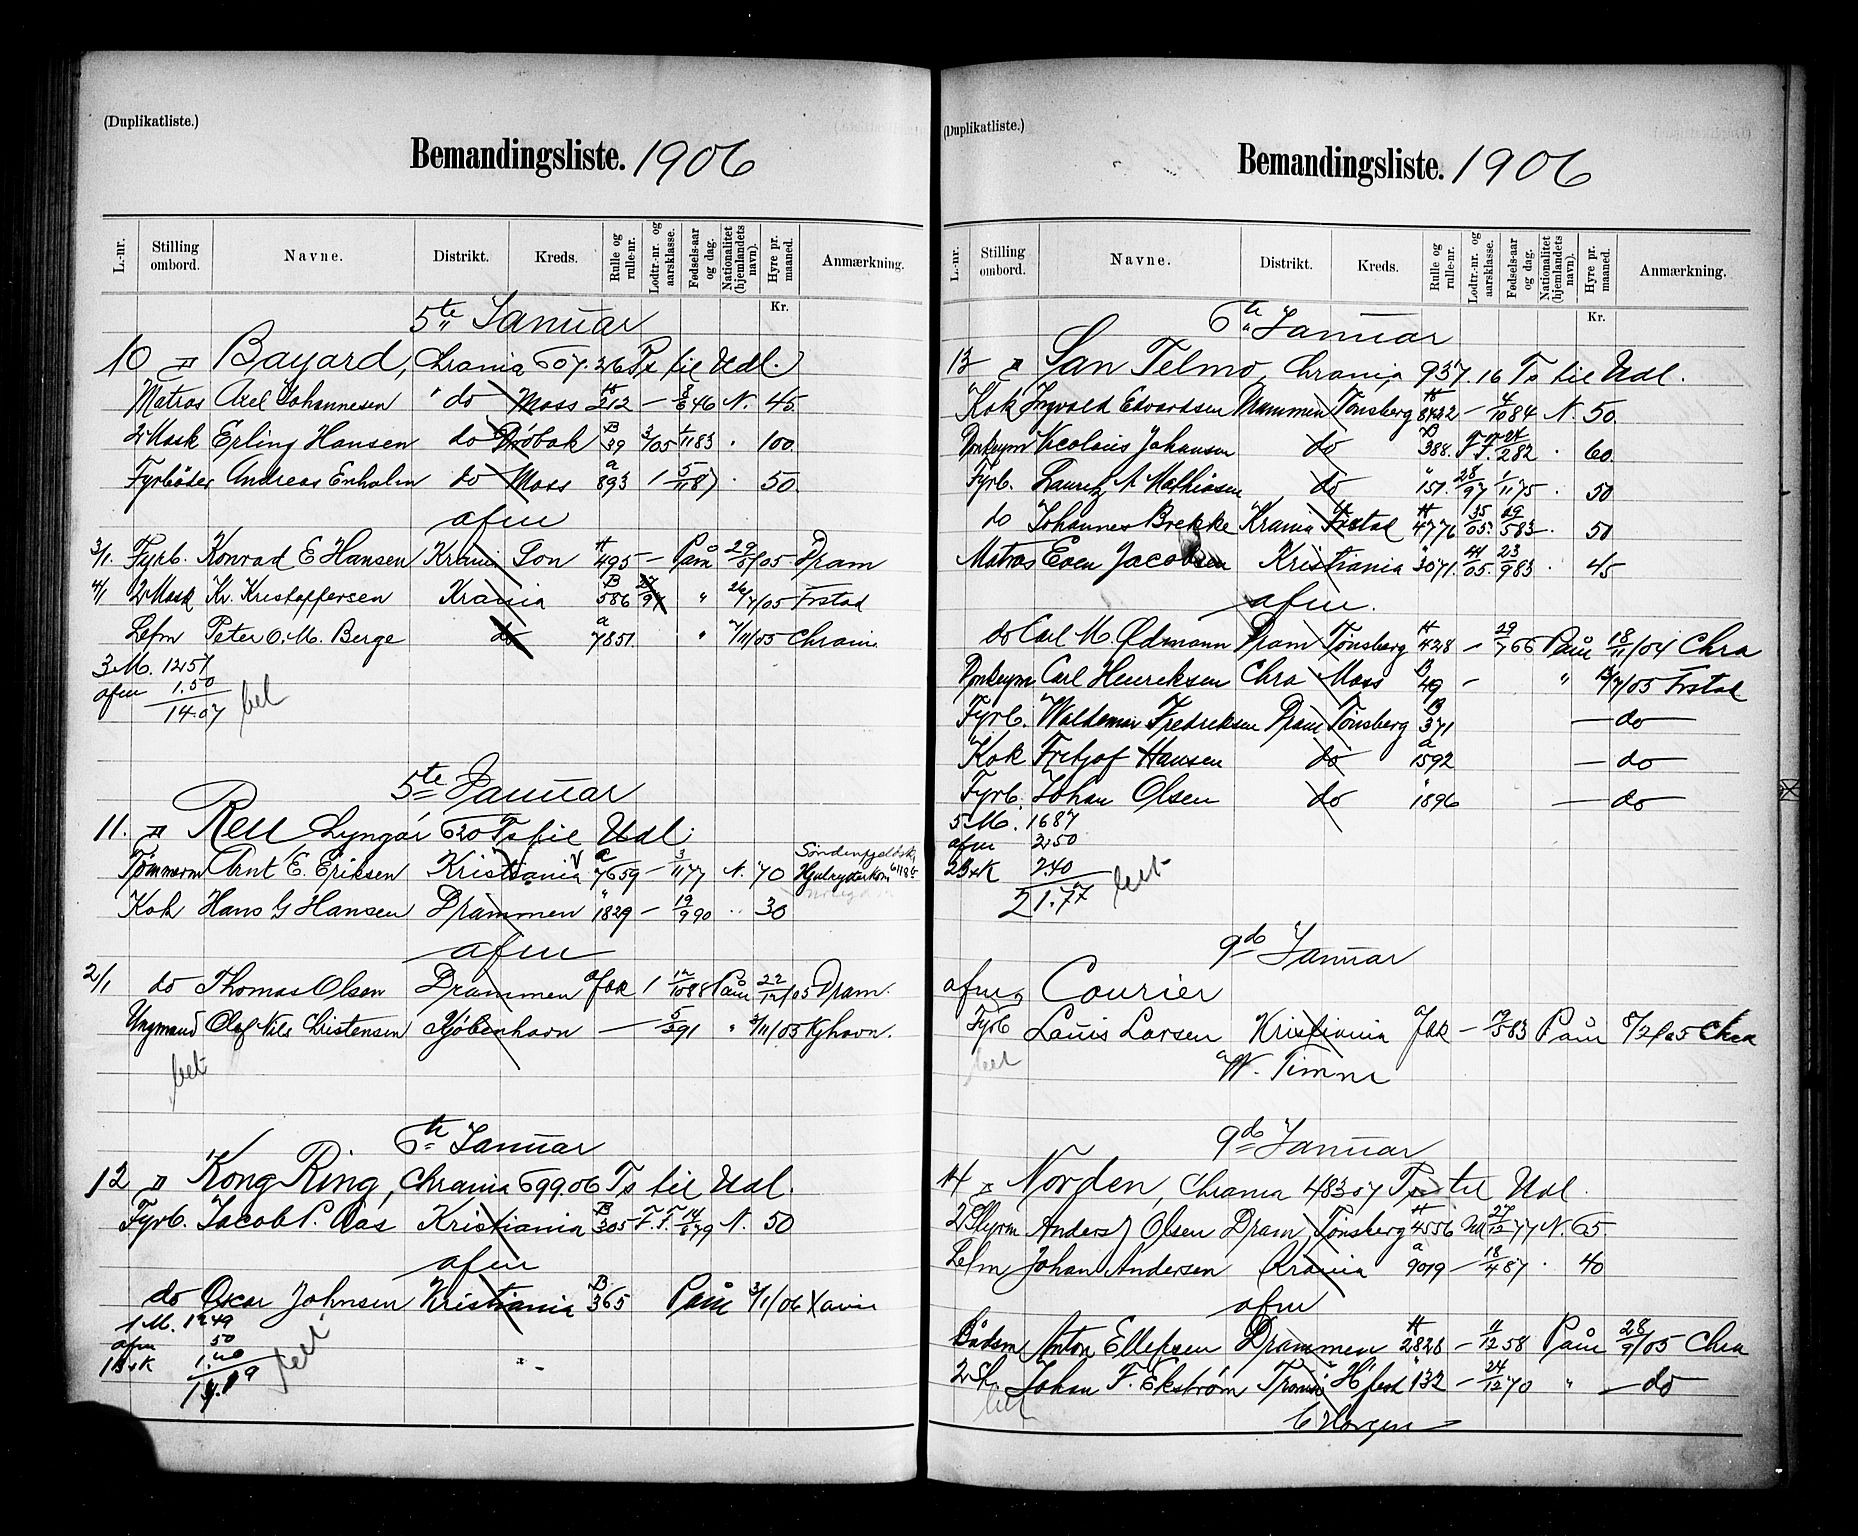 (Duplikatliste.)
Bemandingsliste. 1906
L.-nr. Stilling ombord. Navne. Distrikt. Kreds. Rulle og rulle-nr. Lodtr.-nr. og aarsklasse. Fødsels-aar og dag. Nationalitet (hjemlandets navn). Hyre pr. maaned. Anmærkning.
Kr.
5te Januar
10 Bayard, Chrania 607.26 Ts til Udl.
Matros Axel Johannesen do Moss A 212 — 8/6 46 N. 45
2 Mask Erling Hansen do Drøbak B 39 3/05 1/11 83 . 100
Fyrbøder Andreas Enholm do Moss a 893 1 5/11 87 . 50
afm
3/1 Fyrb. Konrad E Hansen Krania Son A 495 — Paam 29/8/05 Dram
4/1 2 Mask Kr. Kristoffersen Krania B 586 27/97 " 26/7/05 Frstad
Lefm Peter O. M. Berge do a 7851 " 7/11/05 Chrania
3 M. 12.57
afm 1.50
14.07 bet
5te Januar
11. Reu Lyngør 620 Ts til Udl.
Tømmerm Arnt E. Eriksen Kristiania a 7659 — 3/11 77 N. 70 Søndenfjeldsk
Kok Hans G Hansen Drammen " 1829 — 19/9 90 .. 30
afm
2/1 do Thomas Olsen Drammen 1 12/10 88 Paam 22/12/05 Dram.
Ungmand Olaf Nils Christensen Kjøbenhavn — 5/3 91 " 3/11/05 Kjhavn.
bet
6te Januar
12 Kong Ring, Chrania 699.06 Ts til Udl.
Fyrb. Jacob P. Aas Kristiania B 305 F.F. 14/8 79 N. 50
afm
do Oscar Johnsen Kristiania B 365 Paam 3/1/06
1 M. 12.49
afm 50
1 B&K 1.20
14.19 bet
(Duplikatliste.)
Bemandingsliste. 1906
L.-nr. Stilling ombord. Navne. Distrikt. Kreds. Rulle og rulle-nr. Lodtr.-nr. og aarsklasse. Fødsels-aar og dag. Nationalitet (hjemlandets navn). Hyre pr. maaned. Anmærkning.
Kr.
6te Januar
13 San Telmo, Chrania, 937.16 Ts til Udl.
Kok Ingvald Edvardsen Drammen Tønsberg A 8432 — 4/10 84 N. 50
Donkeym Nicolais Johansen do B 388. F.F. 24/2 82 . 60
Fyrb. Lauritz A Mathiasen do " 151. 28/97 1/11 75 . 50
do Johannes Brekke Krania Frstad A 4776 35/05. 29/5 83 . 50
Matros Even Jacobsen Kristiania " 3071. 41/05. 23/9 83 . 45
afm.
do Carl M. Ødmann Dram Tønsberg A 428 — 29/7 66 Paam 18/11/04 Chra
Donkeym Carl Henriksen Chra Moss B 49 — " 12/7/05 Frstad
Fyrb. Waldemar Fredriksen Dram Tønsberg B 371 — do —
Kok Fritjof Hansen do a 1592 — do —
Fyrb. Johan Olsen do " 1896 — do —
5 M. 16.87
afm 2.50
2 B&K 2.40
21.77 bet
9de Januar
afm, Courier
Fyrb Lauis Larsen Kristiania — 83 Paam 5/2/05 Chra
bet W. Timme
9de Januar
14 Norden, Chrania 483.07 Ts til Udl.
2 Styrm Anders J Olsen Dram Tønsberg A 4556 27/12 77 N. 65
Lefm Johan Andersen Krania a 9019 — 18/4 87 . 40
afm
Baadsm Anton Ellefsen Drammen A 2828 — 11/12 58 Paam 28/9/05 Chra
2 St. Johan F. Ekström Tromsø Hfest " 132 — 24/12 70 " — do
bet C Horgen